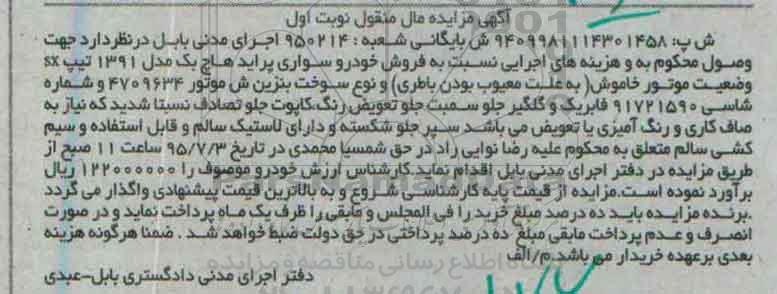 آگهی مزایده مال منقول نوبت اول
ش پ: ۹۴۰۹۹۸۱۱۱۴۳۰۱۴۵۸ ش بایگانی شعبه : ۹۵۰۲۱۴ اجرای مدنی بابل درنظردارد جهت
وصول محکوم به و هزینه های اجرایی نسبت به فروش خودرو سواری پراید هاچ بک مدل ۱۳۹۱ تیپ sx
وضعیت موتور خاموش( به علت معیوب بودن باطری) و نوع سوخت بنزین ش موتور ۴۷۰۹۶۳۴ و شماره
شاسی ۹۱۷۲۱۵۹۰ فابریک و گلگیر جلو سمت جلو تعویض رنگ،کاپوت جلو تصادف نسبتا شدید که نیاز به
صاف کاری و رنگ آمیزی یا تعویض می باشد سپر جلو شکسته و دارای لاستیک سالم و قابل استفاده و سیم
کشی سالم متعلق به محکوم علیه رضا نوایی راد در حق شمسیا محمدی در تاریخ ۹۵/۷/۳ ساعت ۱۱ صبح از
طریق مزایده در دفتر اجرای مدنی بابل اقدام نماید.کارشناس ارزش خودرو موصوف را ۱۲۲۰۰۰۰۰۰ ریال
برآورد نموده است.مزایده از قیمت پایه کارشناسی شروع و به بالاترین قیمت پیشنهادی واگذار می گردد
.برنده مزایده باید ده درصد مبلغ خرید را فی المجلس و مابقی را ظرف یک ماه پرداخت نماید و در صورت
انصرف و عدم پرداخت مابقی مبلغ ده درصد پرداختی در حق دولت ضبط خواهد شد . ضمنا هرگونه هزینه
بعدی برعهده خریدار می باشد.م/الف
دفتر اجرای مدنی دادگستری بابل-عبدی